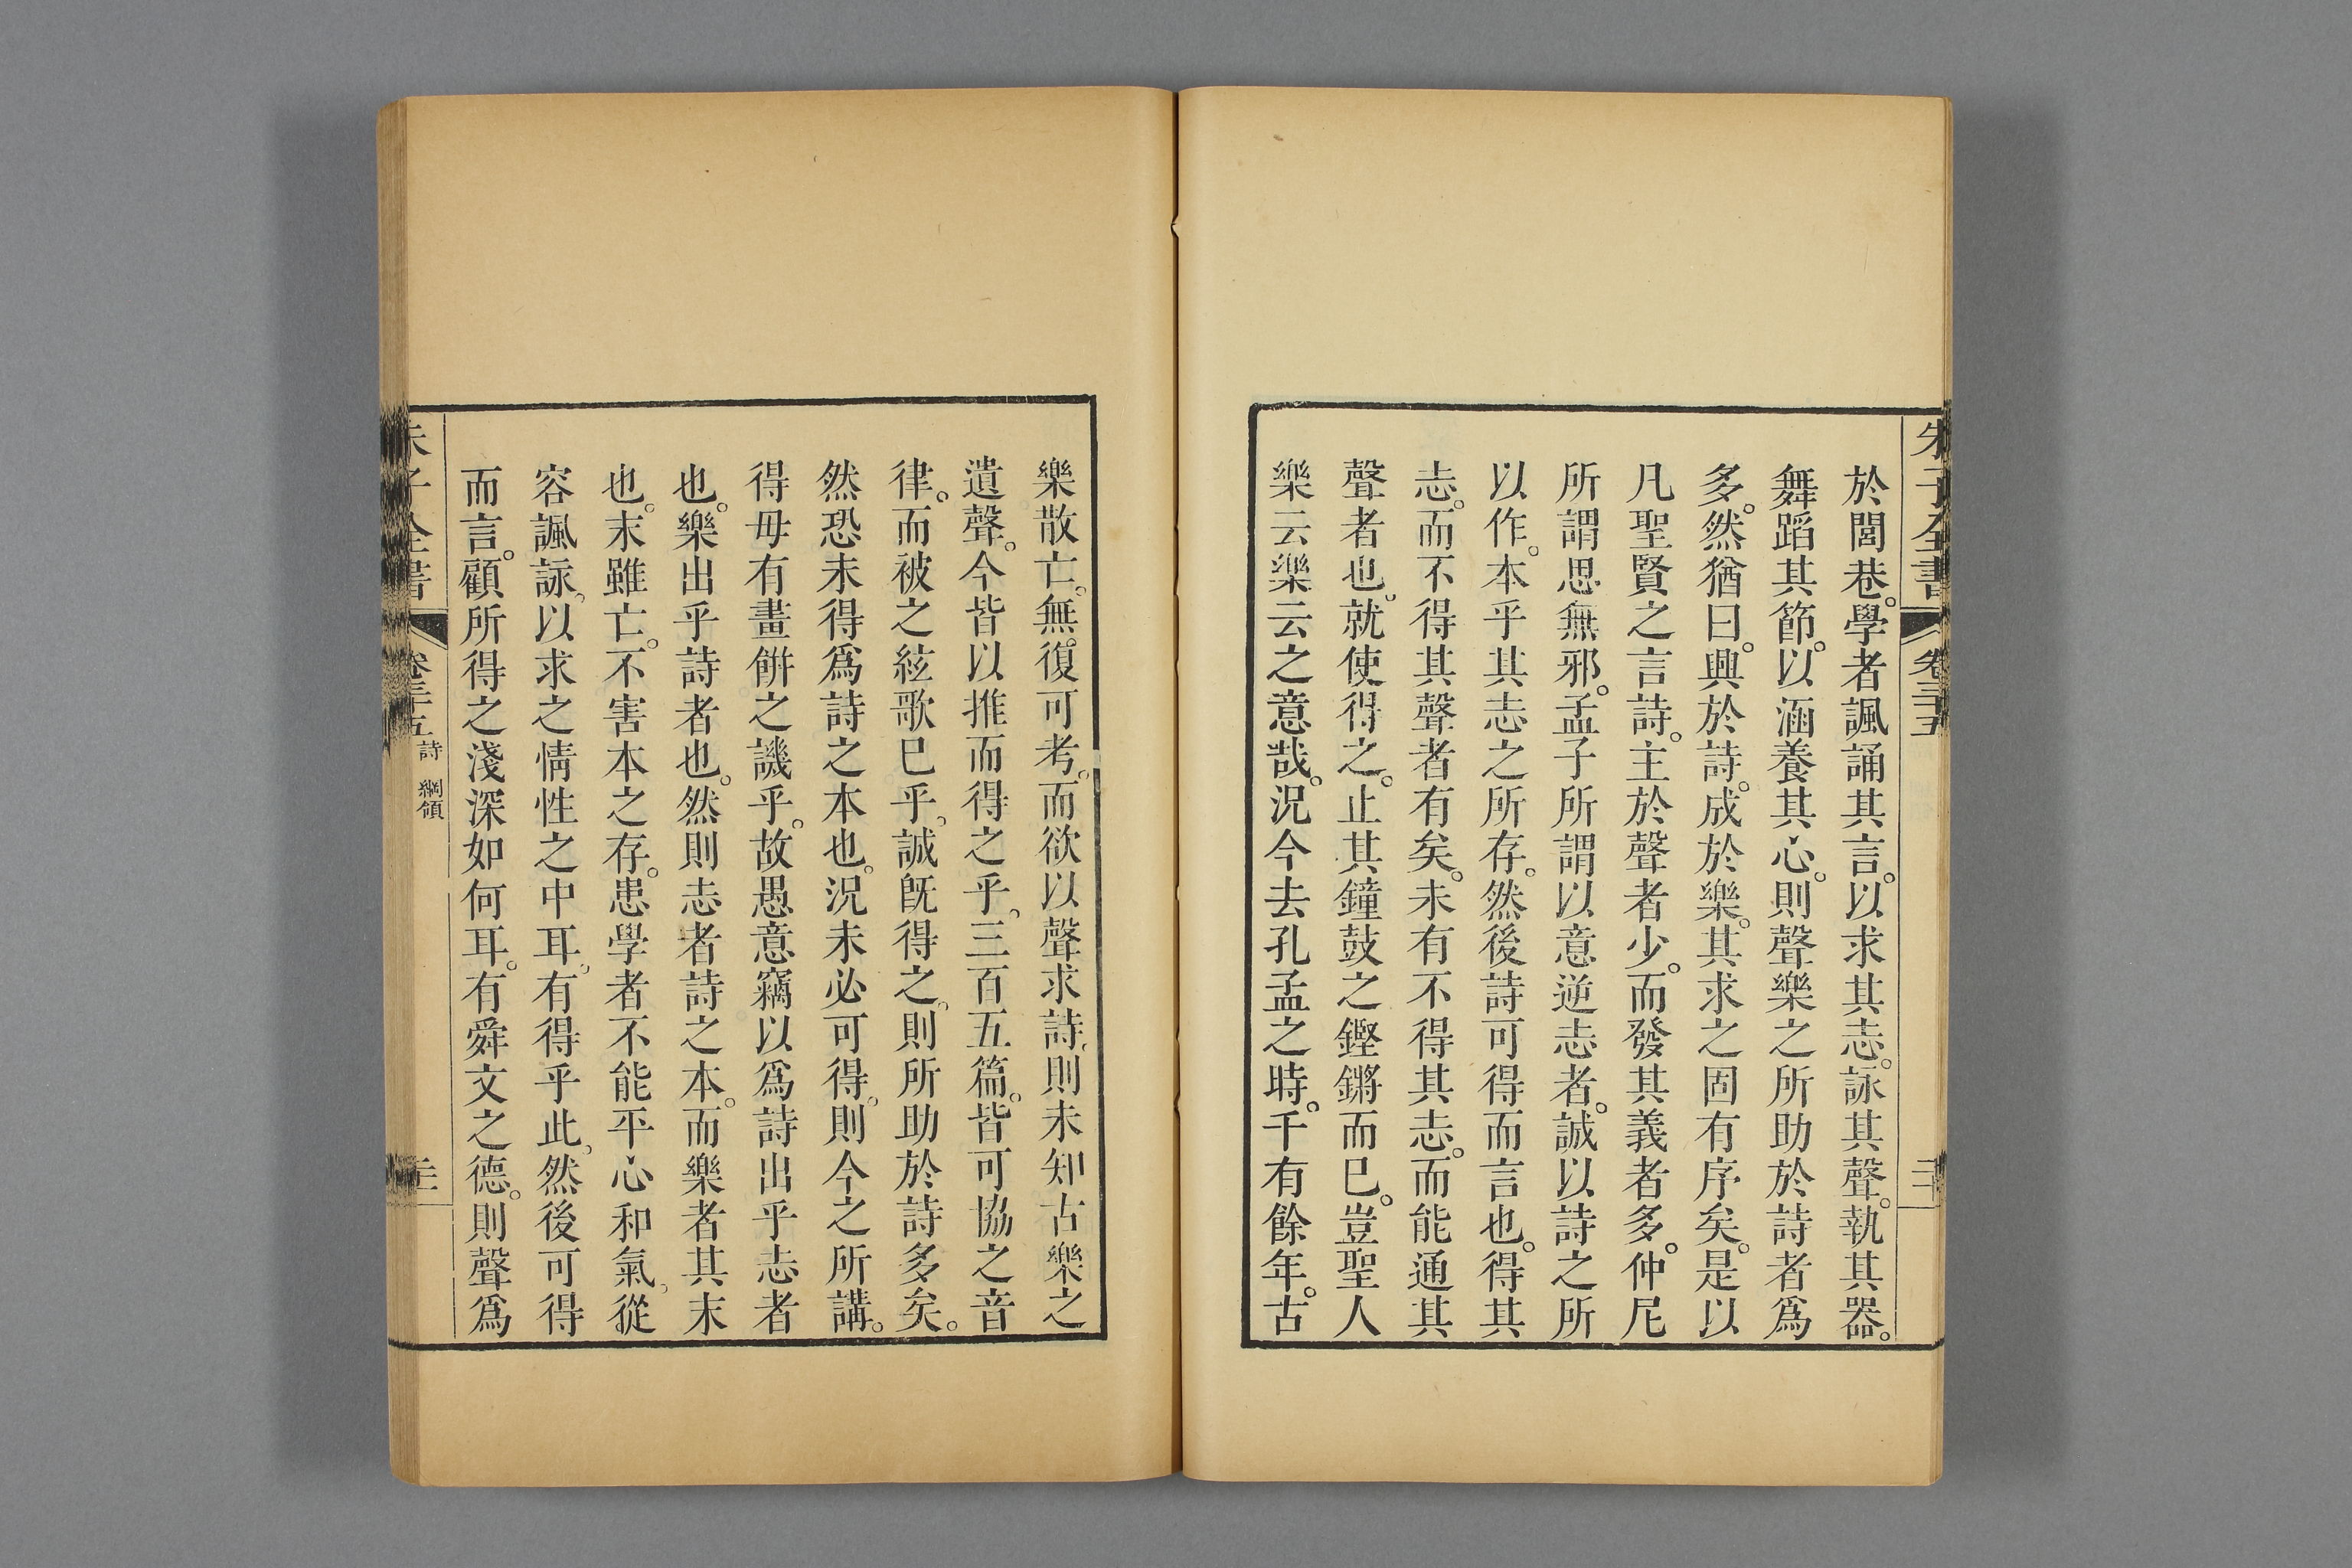 朱子全書 卷三十五
於閭巷。學者諷誦其言。以求其志。詠其聲。執其器。
舞蹈其節。以涵養其心。則聲樂之所助於詩者爲
多。然猶曰。興於詩。成於樂。其求之固有序矣。是以
凡聖賢之言詩。主於聲者少。而發其義者多。仲尼
所謂思無邪。孟子所謂以意逆志者。誠以詩之所
以作。本乎其志之所存。然後詩可得而言也。得其
志。而不得其聲者有矣。未有不得其志。而能通其
聲者也。就使得之。止其鐘鼓之鏗鏘而已。豈聖人
樂云樂云之意哉。況今去孔孟之時。千有餘年。古
樂散亡。無。復可考。而欲以聲求詩。則未知古樂之
遺聲。今皆以推而得之乎。三百五篇。皆可協之音
律。而被之絃歌已乎。誠旣得之。則所助於詩多矣。
然恐未得爲詩之本也。況未必可得。則今之所講。
得毋有畫餠之譏乎。故愚意竊以爲詩出乎志者
也。樂出乎詩者也。然則志者詩之本。而樂者其末
也。末雖亡。不害本之存。患學者不能平心和氣。從
容諷詠。以求之情性之中耳。有得乎此。然後可得
而言。顧所得之淺深如何耳。有舜文之德。則聲爲
朱子全書 卷三十五 詩 綱領